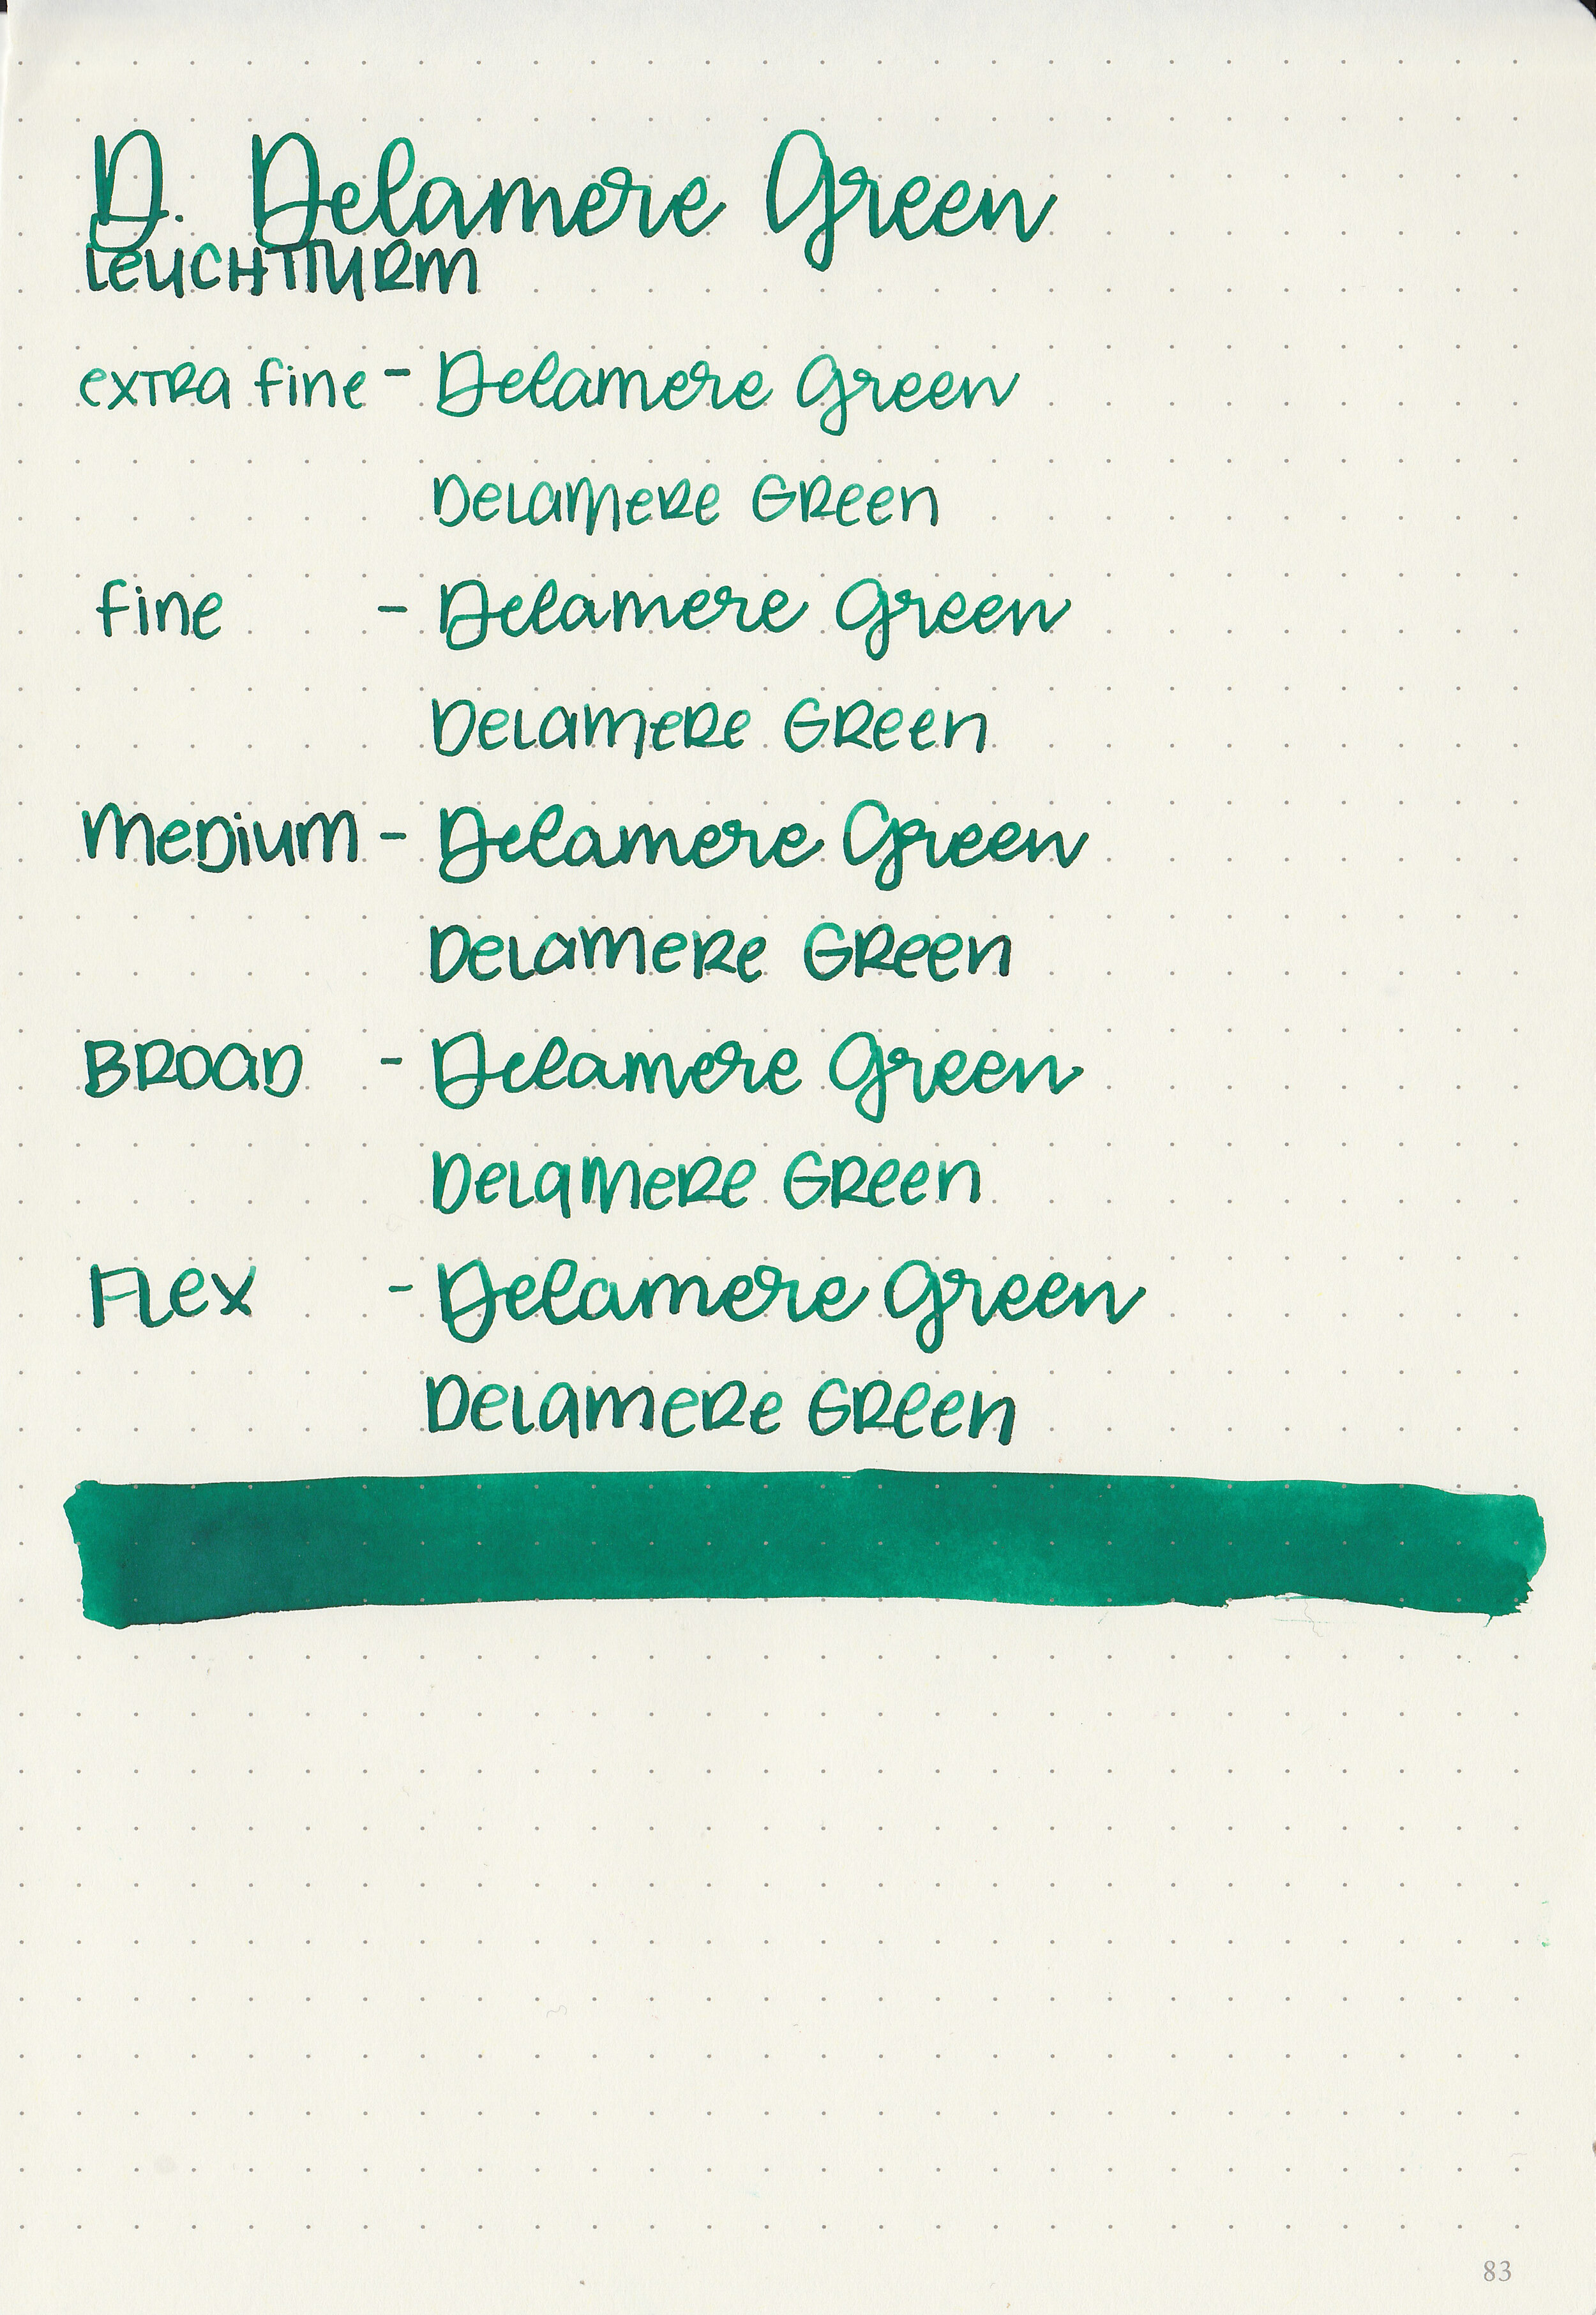 D. Delamere Green
LEUCHTTURM
extra fine - Delamere Green
Delamere Green
fine - Delamere Green
Delamere Green
Medium - Delamere Green
Delamere Green
Broad - Delamere Green
Delamere Green
Flex - Delamere Green
Delamere Green
83